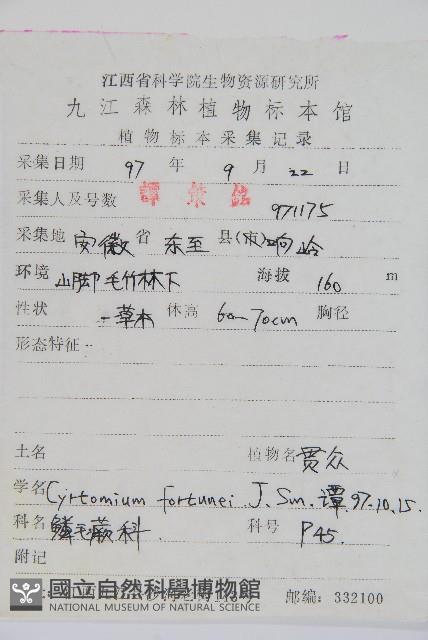 江西省科学院生物资源研究所
九江森林植物标本馆
植物标本采集记录
采集日期 97 年 9 月 22 日
采集人及号数 譚策銘 971175
采集地 安徽 省 东至 县(市) 响岭
环境 山脚毛竹林下 海拔 160 m
性状 草本 体高 60-70cm 胸径
形态特征
土名 植物名 贯众
学名 Cyrtomium fortunei J.Sm. 谭 97.10.15.
科名 鳞毛蕨科 科号 P45.
附记
邮编: 332100
國立自然科學博物館
NATIONAL MUSEUM OF NATURAL SCIENCE